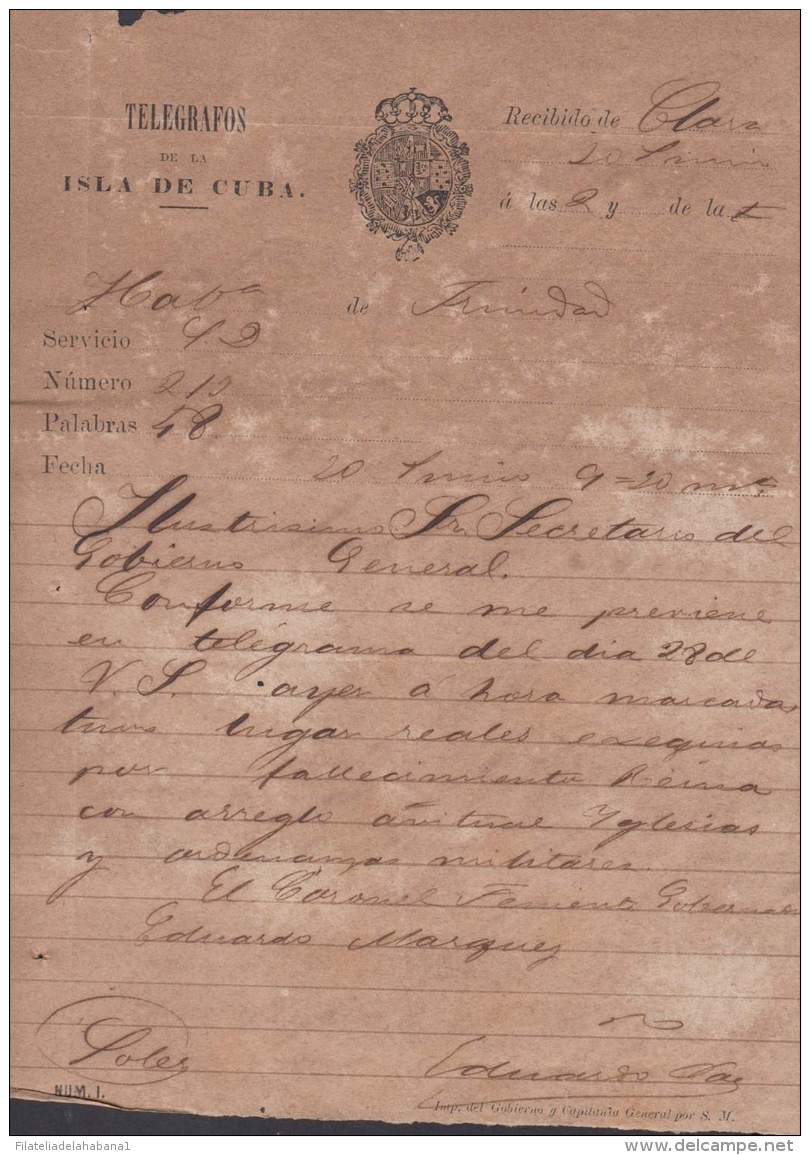 TELEGRAFOS
DE LA
ISLA DE CUBA.
Recibido de Clara
20 Junio
á las 2 y de la t
Habª de Trinidad
Servicio S. D
Número 212
Palabras 48
Fecha 20 Junio 9=20 mª
Ilustrisimo Sr. Secretario del
Gobierno General.
Conforme se me previene
en telégrama del dia 28 de
V. S. ayer á hora marcada
tuvo lugar reales exequias
por fallecimiento Reina
con arreglo á ritual Yglesias
y ordenanzas militares.
El Coronel Teniente Gobernador
Eduardo Marquez
Soler
Eduardo
NUM. 1.
Imp. del Gobierno y Capitanía General por S. M.
Filateliadelahabana1
delcampe.net